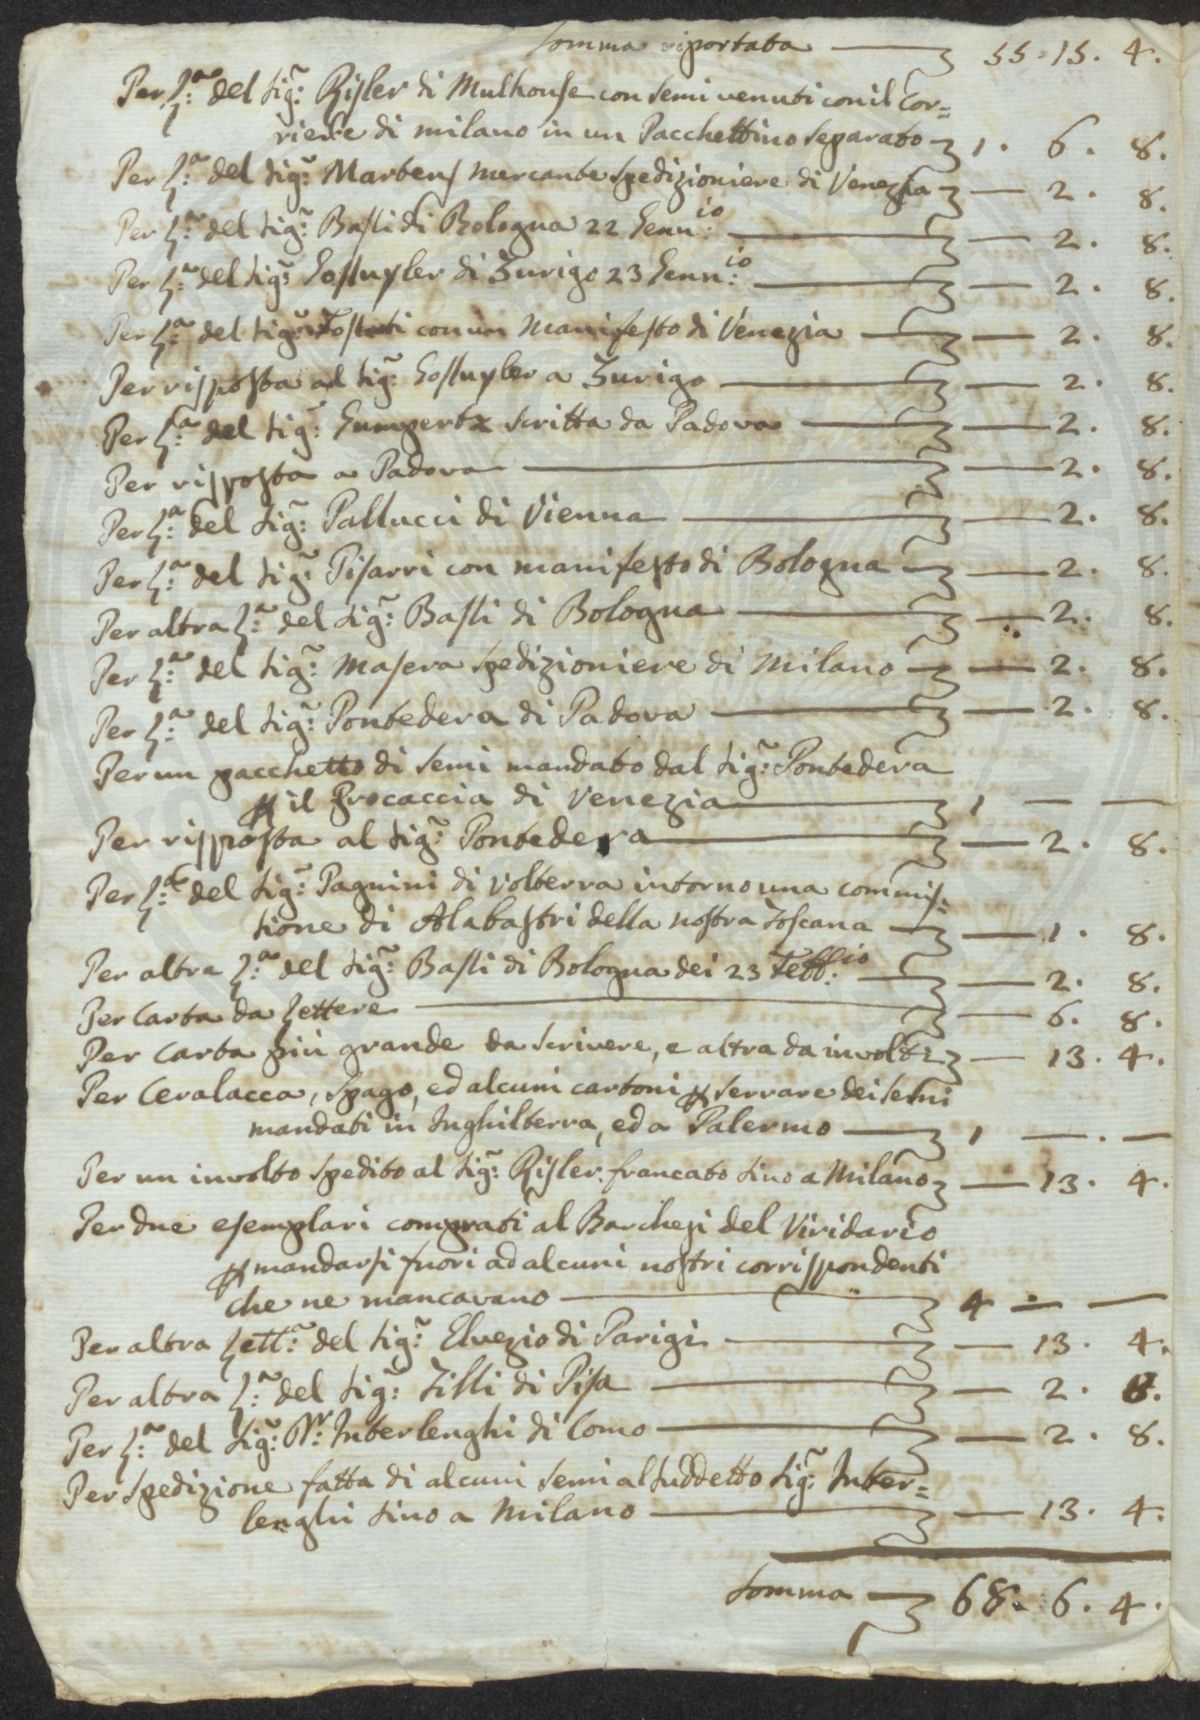 Somma riportata — 55. 15. 4.
Per L.ª del Sig.r Risler di Mulhouse con semi venuti con il Cor=
riere di Milano in un Pacchettino separato — 1. 6. 8.
Per L.ª del Sig.r Martens mercante spedizioniere di Venezia — 2. 8.
Per L.ª del Sig.r Bassi di Bologna 22 Genn.io — 2. 8.
Per L.ª del Sig.r Gossuyler di Zurigo 23 Genn.io — 2. 8.
Per L.ª del Sig.r con un Manifesto di Venezia — 2. 8.
Per risposta al Sig.r Gossuyler a Zurigo — 2. 8.
Per L.ª del Sig.r Gumpertz scritta da Padova — 2. 8.
Per risposta a Padova — 2. 8.
Per L.ª del Sig.r Pallucci di Vienna — 2. 8.
Per L.ª del Sig.r Pisarri con manifesto di Bologna — 2. 8.
Per altra L.ª del Sig.r Bassi di Bologna — 2. 8.
Per L.ª del Sig.r Masera spedizioniere di Milano — 2. 8.
Per L.ª del Sig.r Pontedera di Padova — 2. 8.
Per un pacchetto di semi mandato dal Sig.r Pontedera
p il Procaccia di Venezia — 1 — —
Per risposta al Sig.r Pontedera — 2. 8.
Per L.ª del Sig.r Pagnini di Volterra intorno una commis=
sione di Alabastri della nostra Toscana — 1. 8.
Per altra L.ª del Sig.r Bassi di Bologna dei 23 Febb.io — 2. 8.
Per Carta da Lettere — 6. 8.
Per Carta più grande da scrivere, e altra da involti — 13. 4.
Per Ceralacca, Spago, ed alcuni cartoni p serrare dei semi
mandati in Inghilterra, ed a Palermo — 1 — . —
Per un involto spedito al Sig.r Risler francato sino a Milano — 13. 4.
Per due esemplari comprati al Barchesi del Viridario
p mandarsi fuori ad alcuni nostri corrispondenti
che ne mancavano — 4 — —
Per altra Lett.ª del Sig.r Elvezio di Parigi — 13. 4.
Per altra L.ª del Sig.r Tilli di Pisa — 2. 8.
Per L.ª del Sig.r Interlenghi di Como — 2. 8.
Per spedizione fatta di alcuni semi al suddetto Sig.r Inter=
lenghi sino a Milano — 13. 4.
Somma — 68. 6. 4.